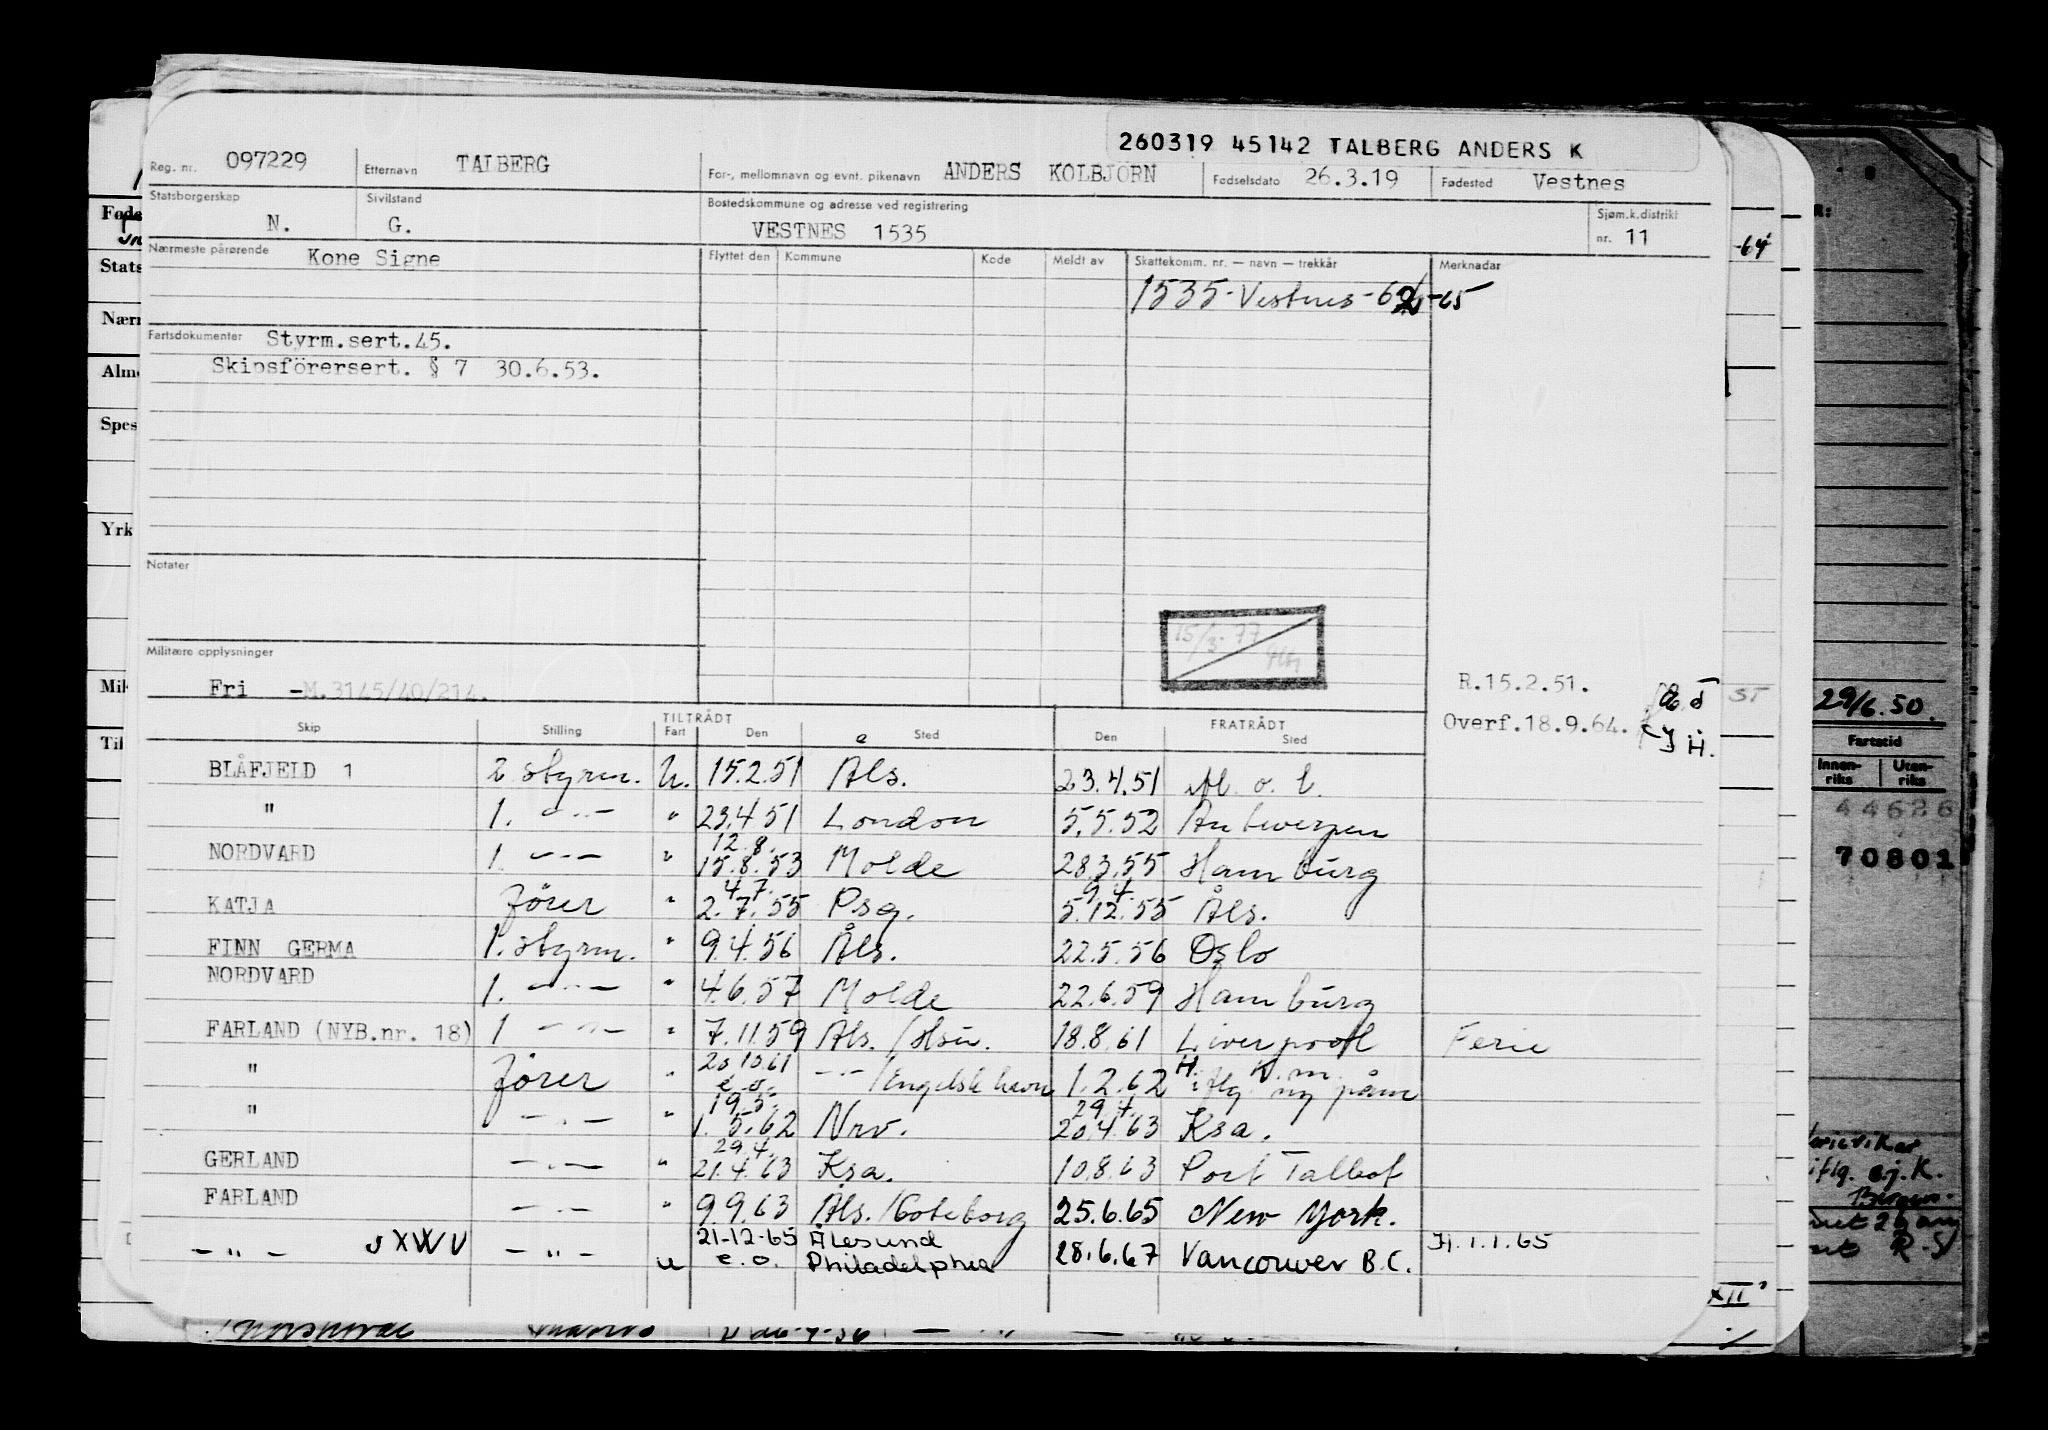 260319 45142 TALBERG ANDERS K
Reg. nr. 097229 Etternavn TALBERG For-, mellomnavn og evnt. pikenavn ANDERS KOLBJÖRN Fødselsdato 26.3.19 Fødested Vestnes
Statsborgerskap N. Sivilstand G. Bostedskommune og adresse ved registrering VESTNES 1535 Sjøm.k.distrikt nr. 11
Nærmeste pårørende Kone Signe Flyttet den Kommune Kode Meldt av Skattekomm. nr. — navn — trekkår Merknadar
1535-Vestnes-
Fartsdokumenter Styrm.sert.45.
Skipsförersert. § 7 30.6.53.
Notater
15/3-77
Militære opplysninger
Fri -M.3145/40/214.
R.15.2.51.
Overf.18.9.64.
Skip Stilling TILTRÅDT Fart Den Sted FRATRÅDT Den Sted
BLÅFJELD 1 2 styrm. U. 15.2.51 Als. 23.4.51 M. o. b.
" 1. -"- " 23.4 51 London 5.5.52 Antwerpen
NORDVARD 1. -"- " 12.8. 15.8.53 Molde 28.3.55 Hamburg
KATJA förer " 4.7. 2.7.55 Psg. 9.4. 5.12.55 Åls.
FINN GERMA 1. styrm. " 9.4.56 Åls. 22.5.56 Oslo
NORDVARD 1. -"- " 4.6.57 Molde 22.6.59 Hamburg
FARLAND (NYB.nr. 18) 1 -"- " 7.11.59 Als. 18.8.61 Liverpool Ferie
" förer " 20 10 61 e.o. -"- /Engelsk havn 1.2.62 iflg. ny påm
" -"- " 19.5. 1.5.62 Nrv. 29.4. 20.4.63 Ksa.
GERLAND -"- " 29.4. 21.4.63 Ksa. 10.8.63 Port Talbot
FARLAND -"- " 9.9.63 Als./Göteborg 25.6.65 New York.
-"- JXWV -"- u 21-12-65 e.o. Ålesund Philadelphia 28.6.67 Vancouver B.C. H.1.1.65
Føde
Stats
Nærn
Alm
Spes
Yrk
Mil
Til
-64
ST
XII
29/6.50.
Fartstid
Innen-riks Uten-riks
44626
70801
iflg. e.j.K.
Bergen.